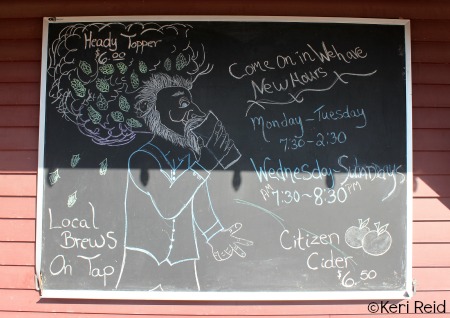 Heady Topper
$6.00
Come on in We have
New Hours
Monday - Tuesday
7:30 - 2:30
Wednesday - Sundays
AM 7:30 - 8:30 PM
Local
Brews
On Tap
Citizen
Cider
$6.50
©Keri Reid